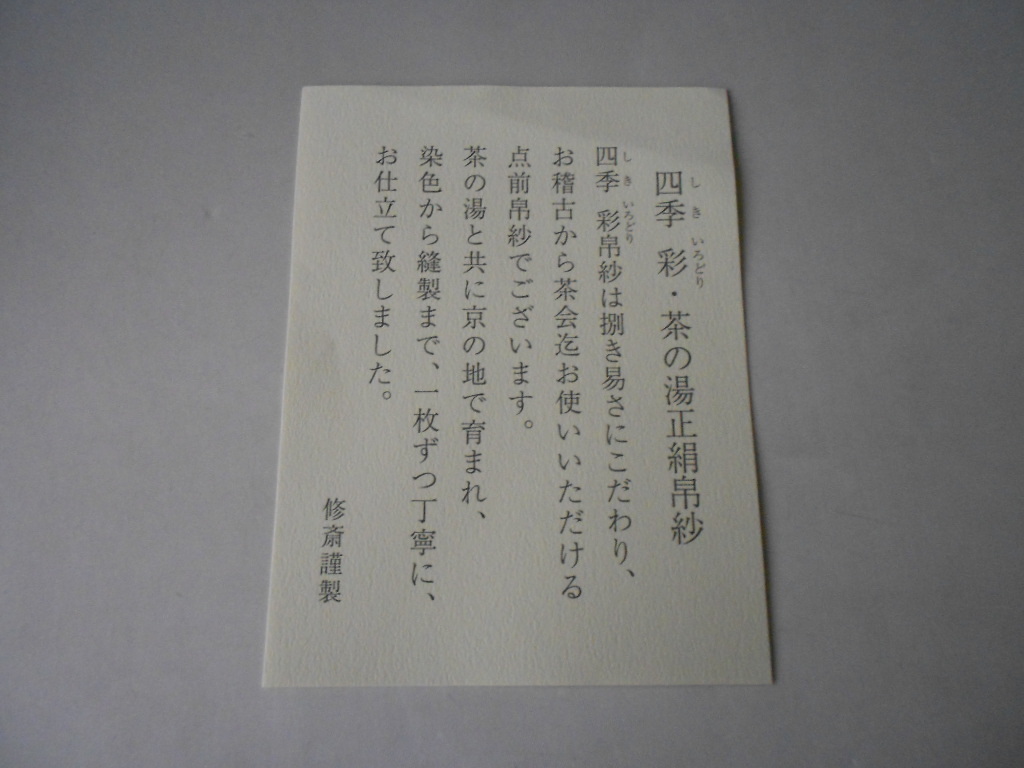 四季 彩・茶の湯正絹帛紗
四季 彩帛紗は捌き易さにこだわり、
お稽古から茶会迄お使いいただける
点前帛紗でございます。
茶の湯と共に京の地で育まれ、
染色から縫製まで、一枚ずつ丁寧に、
お仕立て致しました。
修斎謹製